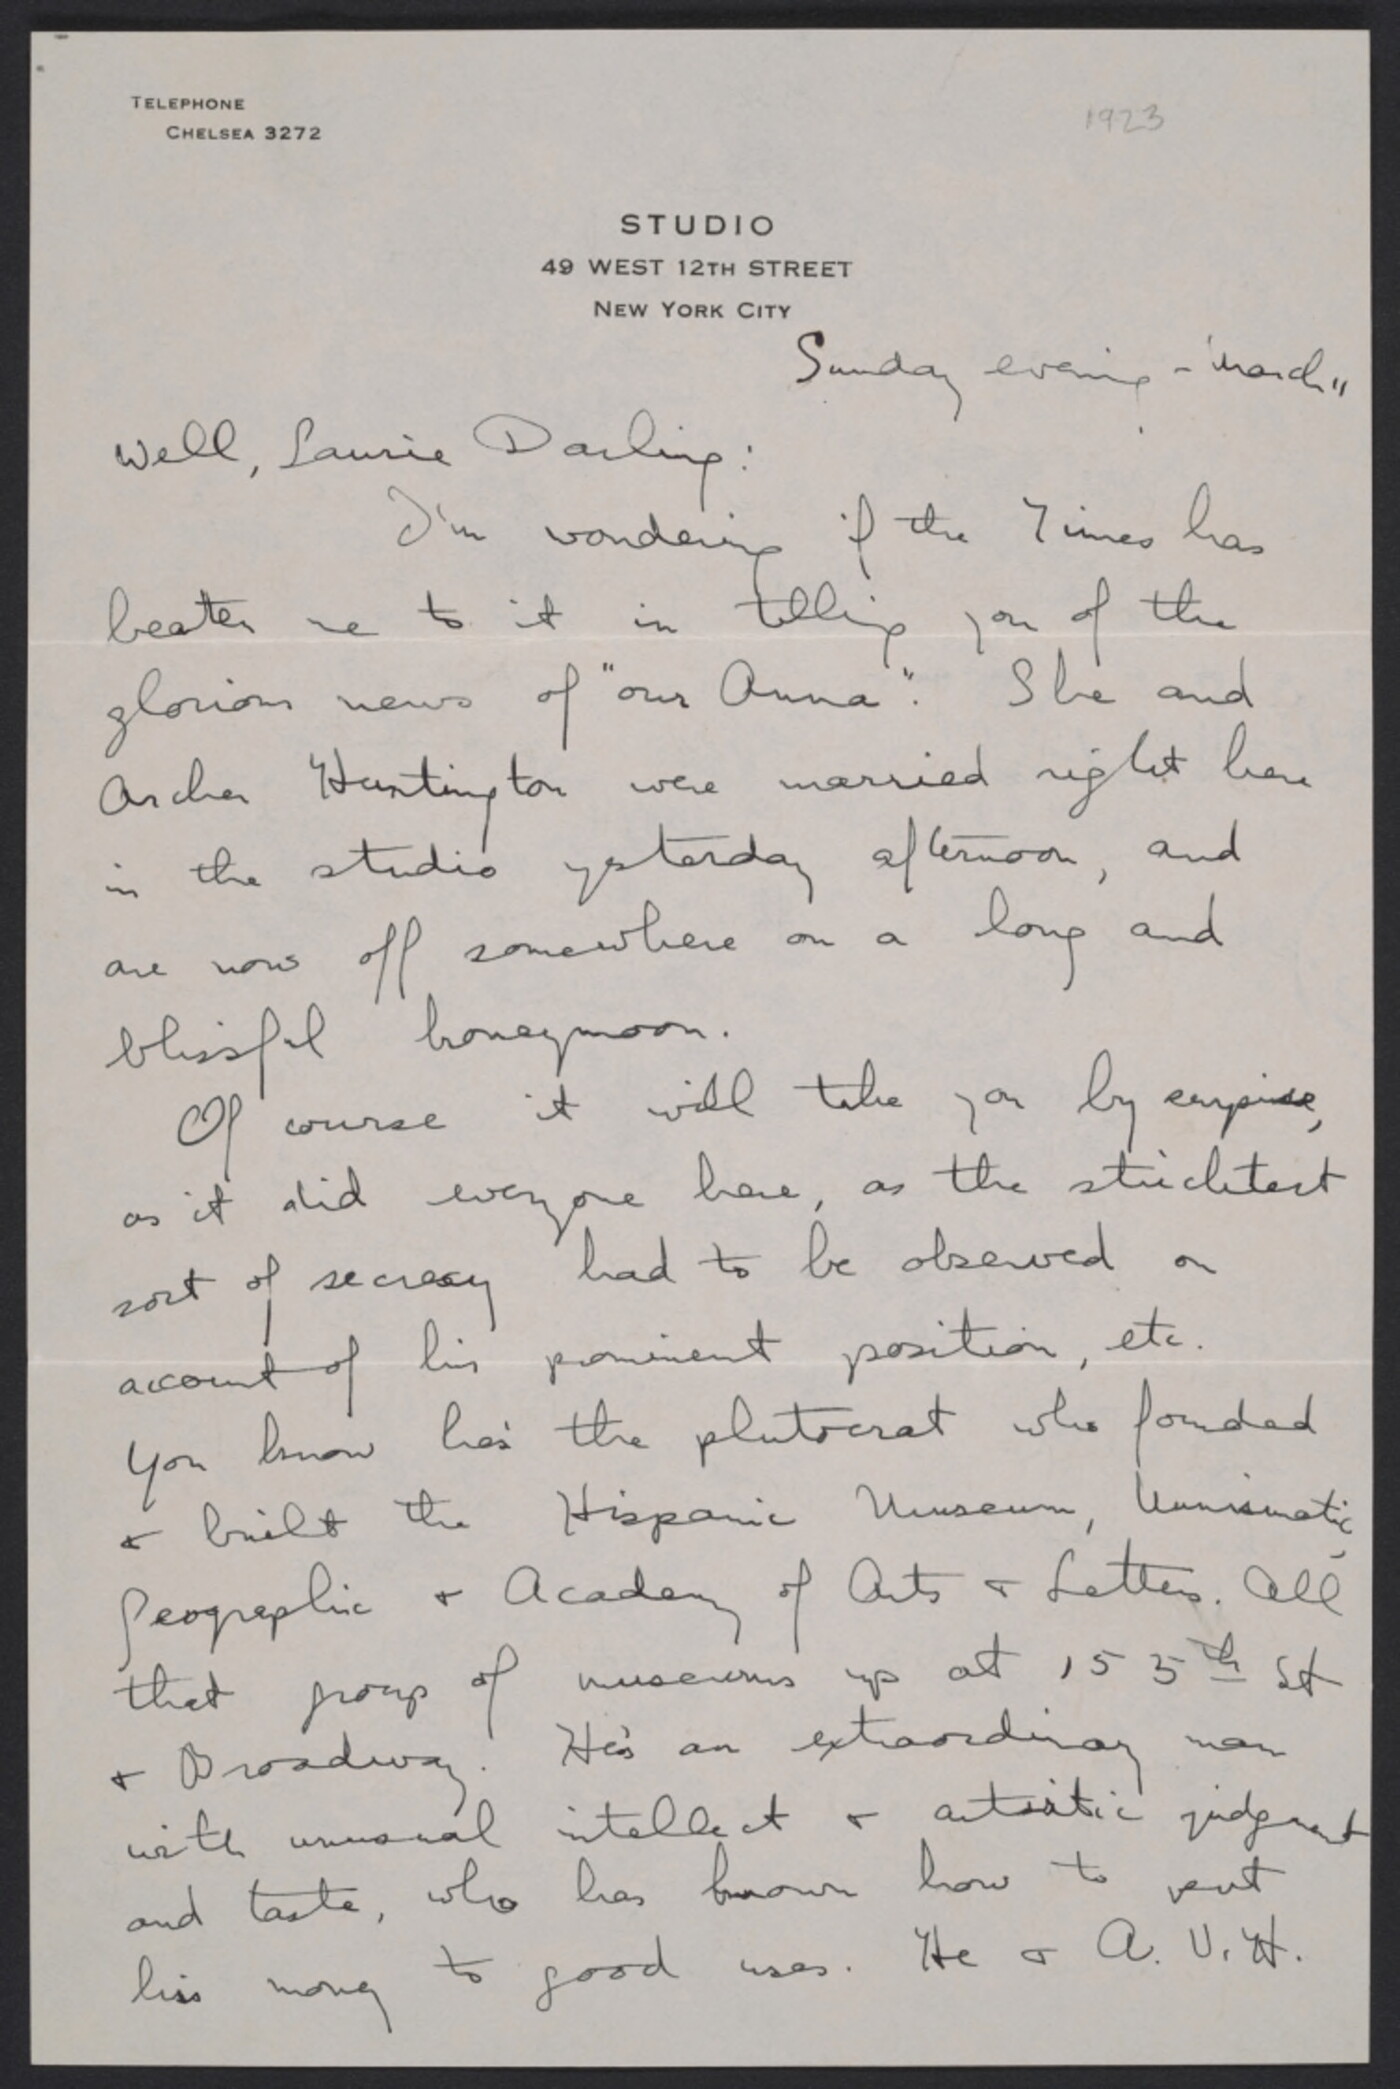 TELEPHONE
CHELSEA 3272
1923
STUDIO
49 WEST 12TH STREET
NEW YORK CITY
Sunday evening - March 11
Well, Laurie Darling:
I'm wondering if the Times has
beaten me to it in telling you of the
glorious news of "our Anna". She and
Archer Huntington were married right here
in the studio yesterday afternoon, and
are now off somewhere on a long and
blissful honeymoon.
Of course it will take you by surprise,
as it did everyone here, as the strictest
sort of secrecy had to be observed on
account of his prominent position, etc.
You know he's the plutocrat who founded
+ built the Hispanic Museum, Numismatic,
Geographic + Academy of Arts + Letters. All
that group of museums up at 155th St
+ Broadway. He's an extraordinary man
with unusual intellect + artistic judgment
and taste, who has known how to put
his money to good uses. He + A. V. H.